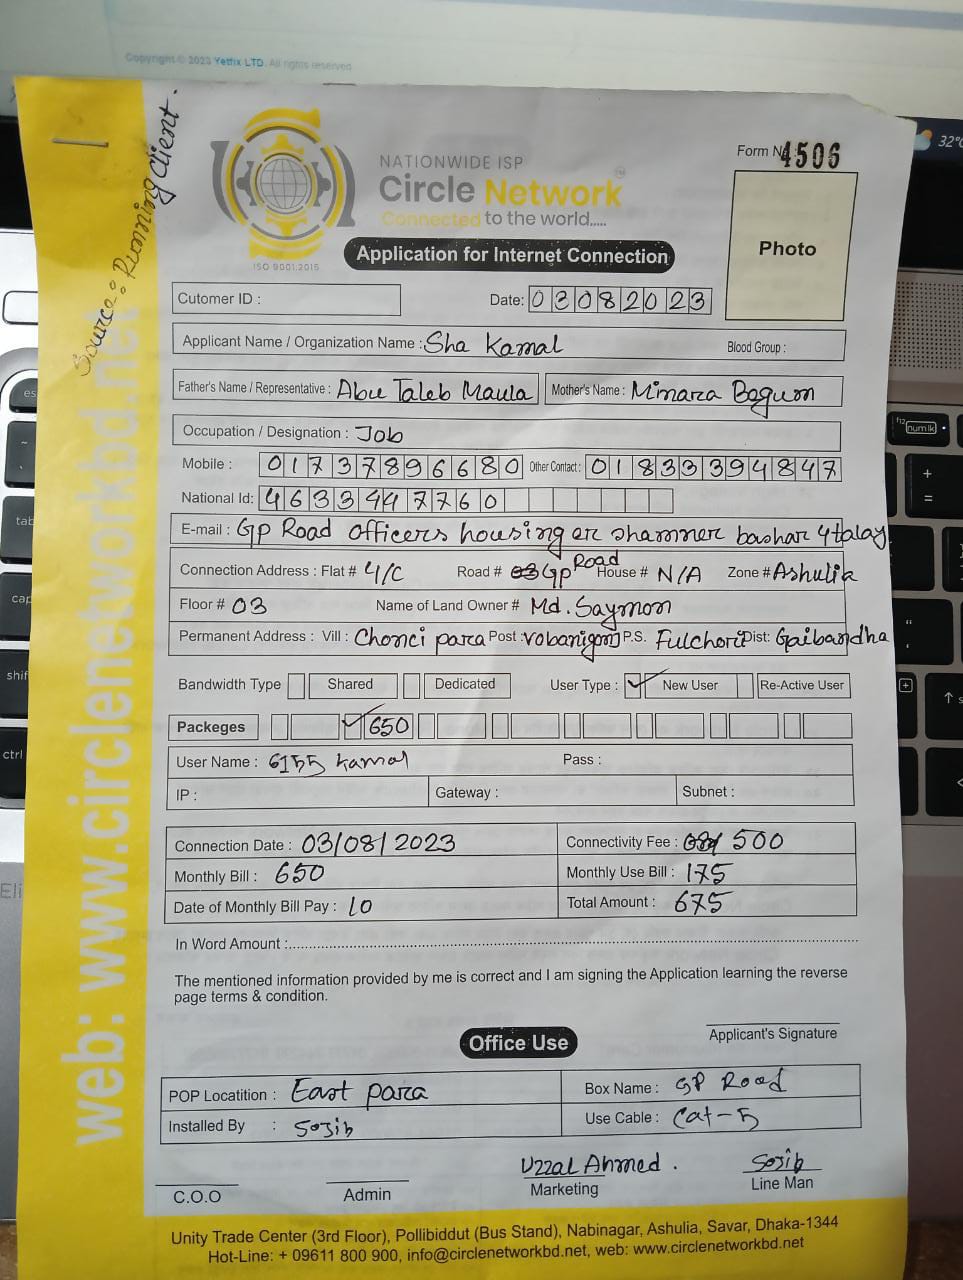 Copyright © 2023 Yetfix LTD. All rights reserved
32°
Source: Running Client.
web: www.circlenetworkbd.net
NATIONWIDE ISP
Circle Network™
Connected to the world.....
ISO 9001:2015
Form No 4506
Photo
Application for Internet Connection
Cutomer ID :
Date: 03082023
Applicant Name / Organization Name : Sha Kamal Blood Group :
Father's Name / Representative : Abu Taleb Maula Mother's Name : Minara Begum
Occupation / Designation : Job
Mobile : 01737896680 Other Contact : 01833394847
National Id: 4633447760
E-mail : Gp Road officers housing er shamner bashar 4talay
Connection Address : Flat # 4/C Road # GP Road House # N/A Zone # Ashulia
Floor # 03 Name of Land Owner # Md. Saymon
Permanent Address : Vill : Chonci para Post : vobanigonj P.S. Fulchori Dist: Gaibandha
Bandwidth Type Shared Dedicated User Type : New User Re-Active User
Packeges 650
User Name : 6155 kamal Pass :
IP : Gateway : Subnet :
Connection Date : 03/08/2023 Connectivity Fee : 500
Monthly Bill : 650 Monthly Use Bill : 175
Date of Monthly Bill Pay : 10 Total Amount : 675
In Word Amount :
The mentioned information provided by me is correct and I am signing the Application learning the reverse
page terms & condition.
Applicant's Signature
Office Use
POP Locatition : East para Box Name : GP Road
Installed By : Sojib Use Cable : Cat-5
Uzzal Ahmed. Sojib
C.O.O Admin Marketing Line Man
Unity Trade Center (3rd Floor), Pollibiddut (Bus Stand), Nabinagar, Ashulia, Savar, Dhaka-1344
Hot-Line: + 09611 800 900, info@circlenetworkbd.net, web: www.circlenetworkbd.net